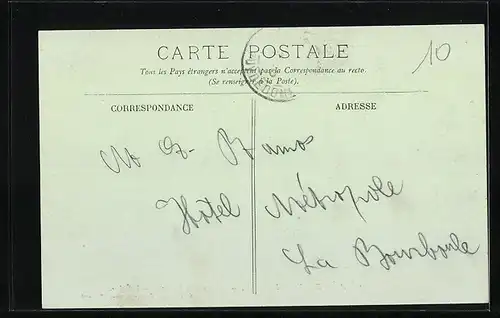 CARTE POSTALE
Tous les Pays étrangers n'acceptent pas la Correspondance au recto.
(Se renseigner à la Poste).
10
CORRESPONDANCE
ADRESSE
Ramos
Hôtel Métropole
La Bourboule